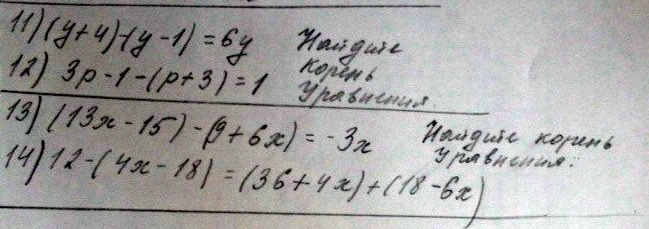 11) (y+4)-(y-1)=6y Найдите
12) 3p-1-(p+3)=1 корень
Уравнения.
13) (13x-15)-(9+6x)=-3x Найдите корень
Уравнения:
14) 12-(4x-18)=(36+4x)+(18-6x)